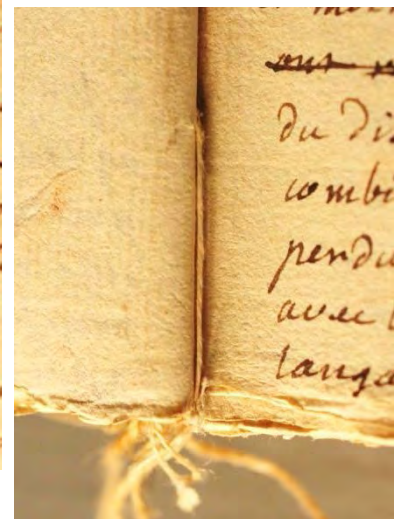 du dis
combi
perdu
avec l
langa